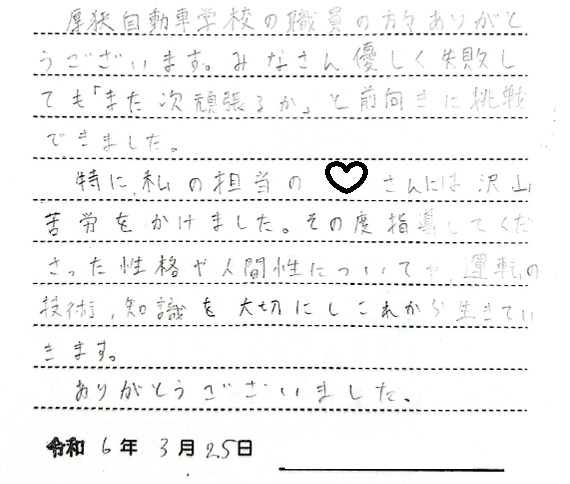 厚狭自動車学校の職員の方々ありがと
うございます。みなさん優しく失敗し
ても「また次頑張るか」と前向きに挑戦
できました。
特に、私の担当の♡さんには沢山
苦労をかけました。その度指導してくだ
さった性格や人間性についてや、運転の
技術、知識を大切にしこれから生きてい
きます。
ありがとうございました。
令和6年3月25日